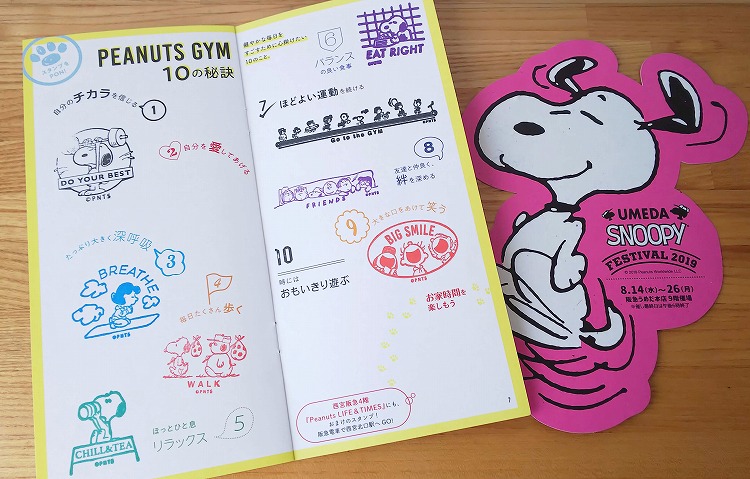 スタンプを
PON!
PEANUTS GYM
10の秘訣
自分のチカラを信じる
1
DO YOUR BEST
©PNTS
2 自分を愛してあげる
たっぷり大きく深呼吸
3
BREATHE
©PNTS
4
毎日たくさん歩く
WALK
©PNTS
ほっとひと息
リラックス
5
CHILL&TEA
©PNTS
健やかな毎日を
すごすために心掛けたい
10のこと。
6
バランス
の良い食事
EAT RIGHT
©PNTS
7 ほどよい運動を続ける
Go to the GYM
8
友達と仲良く、
絆を深める
FRIENDS
©PNTS
9
大きな口をあけて笑う
BIG SMILE
©PNTS
10
時には
おもいきり遊ぶ
お家時間を
楽しもう
西宮阪急4階
「Peanuts LIFE & TIMES」にも、
おまけのスタンプ!
阪急電車で西宮北口駅へGO!
7
UMEDA
SNOOPY
FESTIVAL 2019
© 2019 Peanuts Worldwide LLC
8.14(水)〜26(月)
阪急うめだ本店9階催場
※催し最終日は午後6時終了